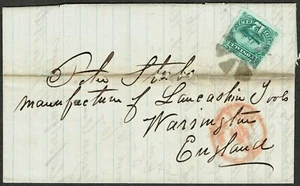 Peter Stubs
manufacture of Lancashire Tools
Warington
England